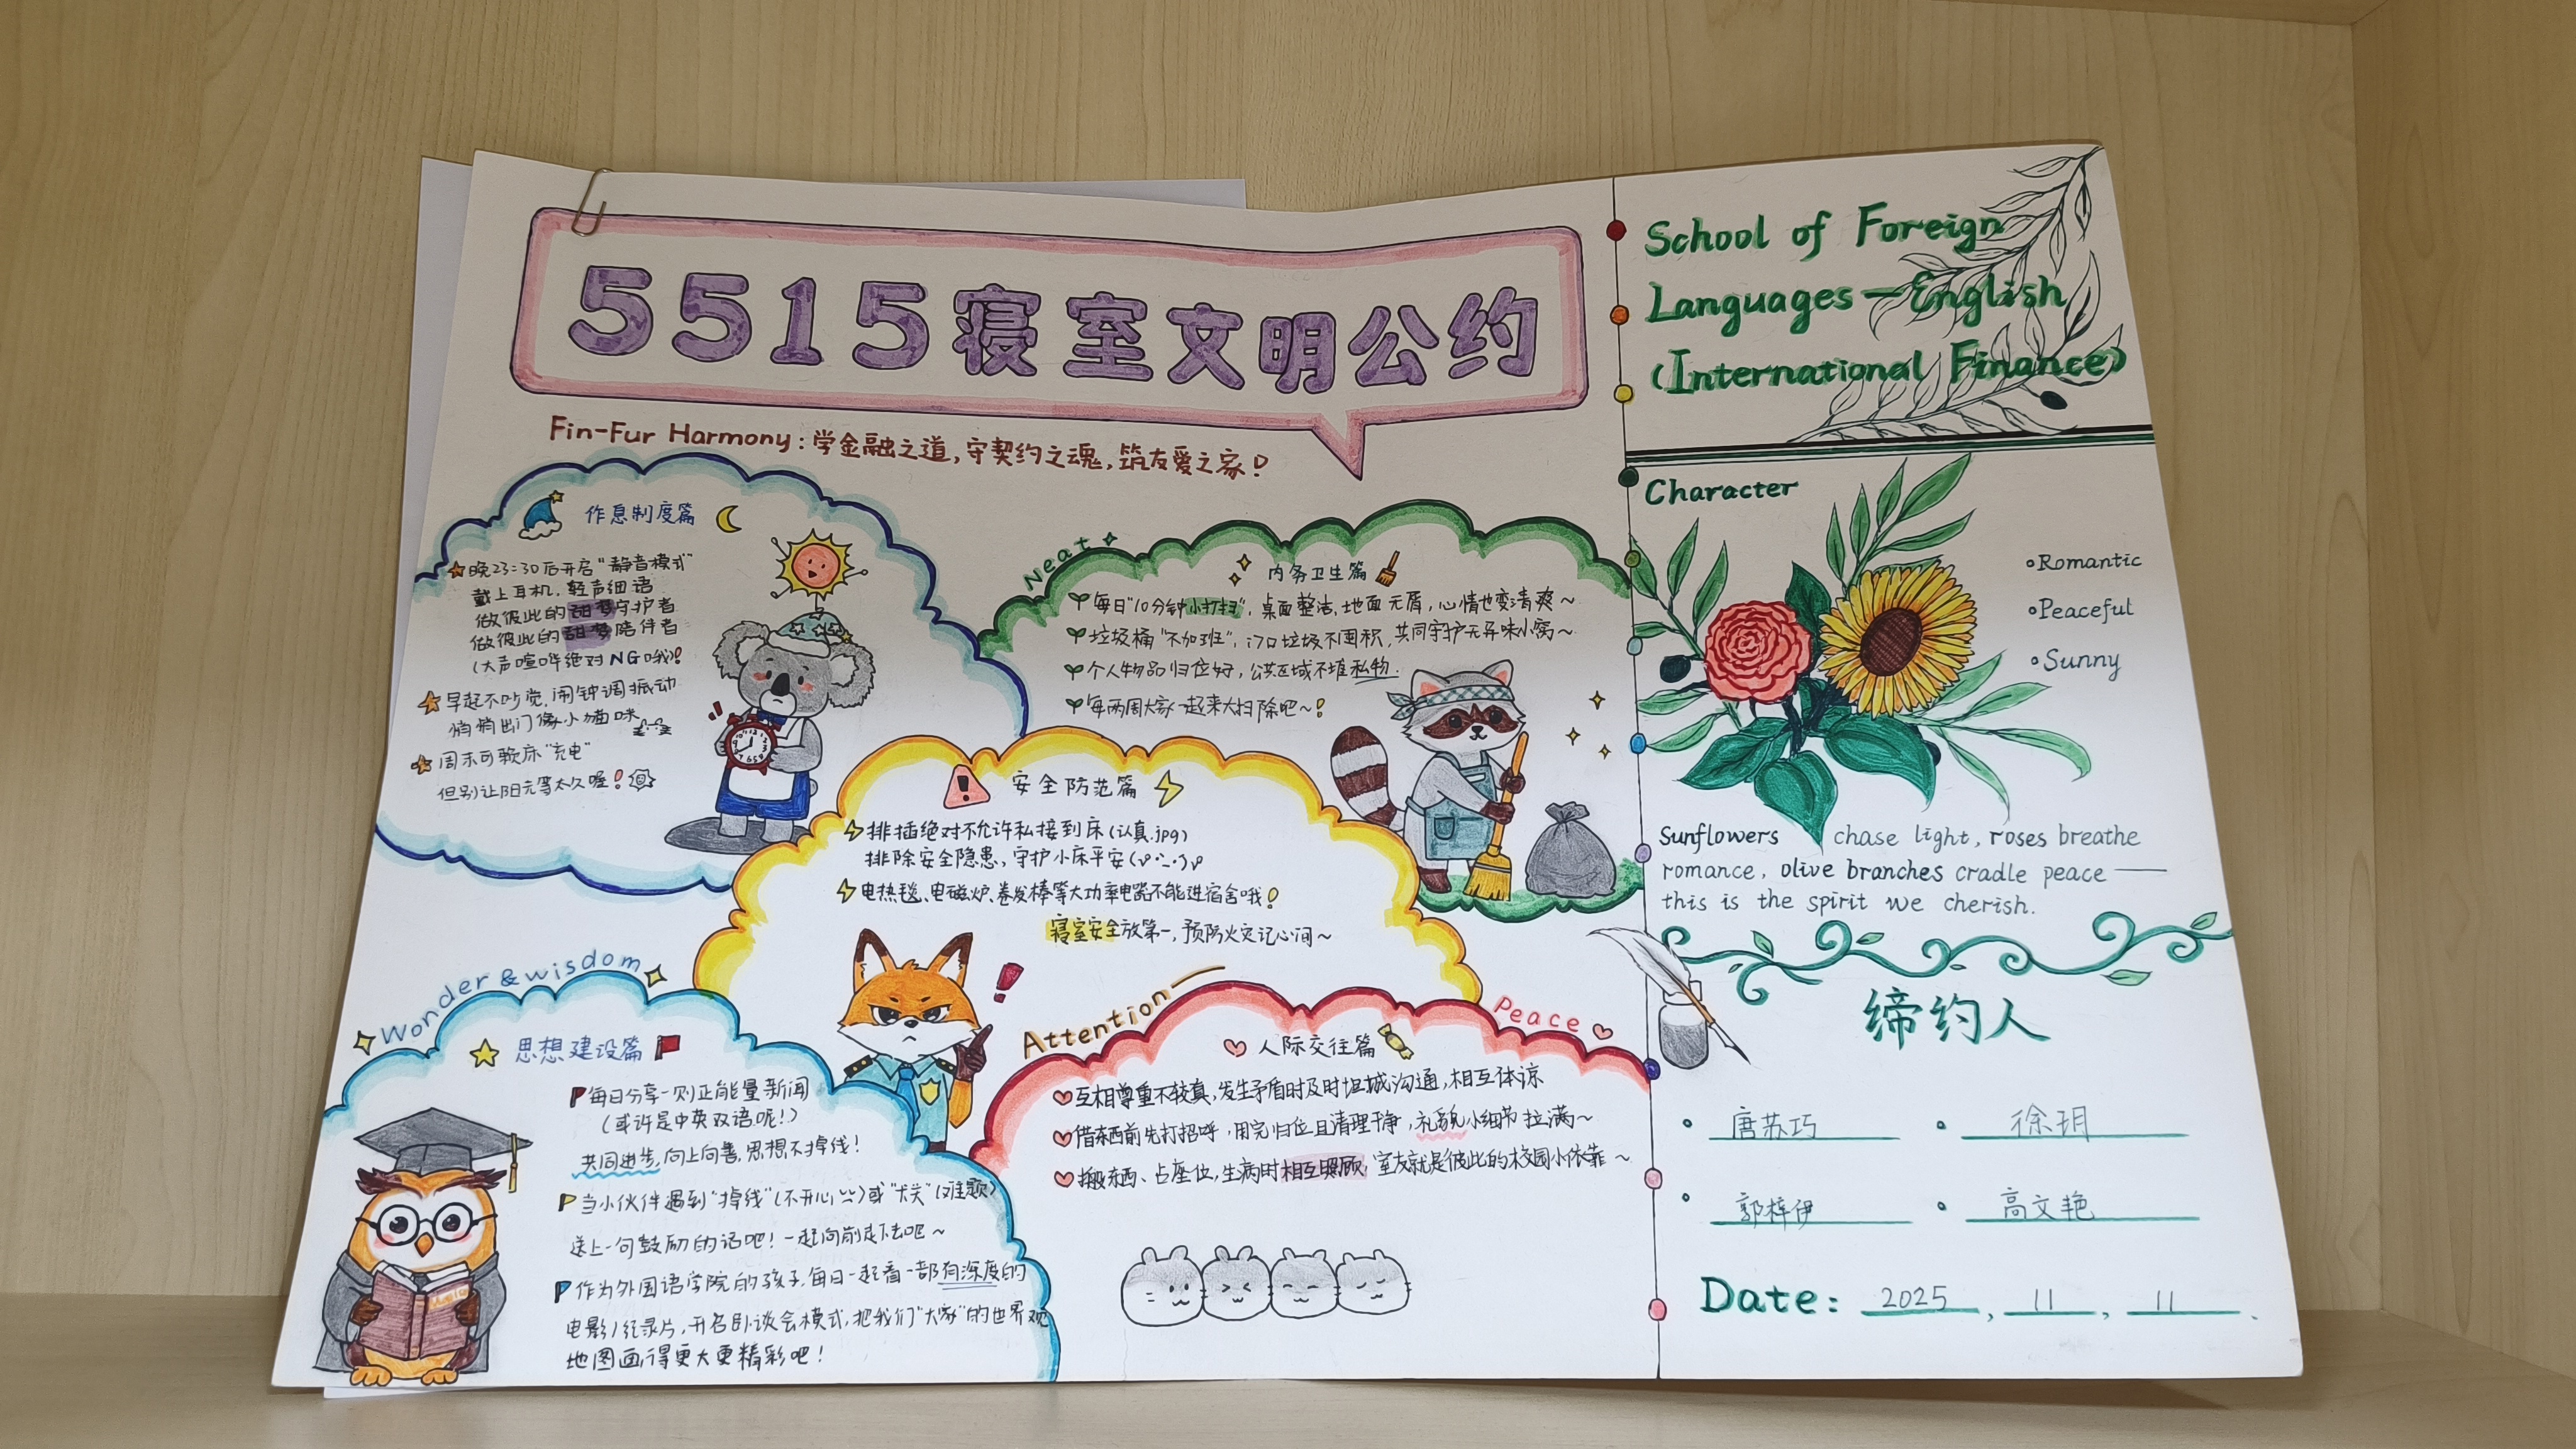 5515寝室文明公约
Fin-Fur Harmony:学金融之道,守契约之魂,筑友爱之家!
作息制度篇
晚23:30后开启"静音模式"
戴上耳机,轻声细语
做彼此的甜梦守护者
做彼此的甜梦陪伴者
(大声喧哗绝对NG哦)!
早起不吵觉,闹钟调振动
悄悄出门像小猫咪
周末可赖床"充电"
但别让阳光等太久喔!
Neat
内务卫生篇
每日"10分钟小打扫",桌面整洁,地面无屑,心情也变清爽~
垃圾桶"不加班",门口垃圾不囤积,共同守护无异味小窝~
个人物品归位好,公共区域不堆私物.
每两周大家一起来大扫除吧~!
安全防范篇
排插绝对不允许私接到床(认真.jpg)
排除安全隐患,守护小床平安
电热毯、电磁炉、卷发棒等大功率电器不能进宿舍哦!
寝室安全放第一,预防火灾记心间~
Wonder & wisdom
思想建设篇
每日分享一则正能量新闻
(或许是中英双语呢!)
共同进步,向上向善,思想不掉线!
当小伙伴遇到"掉线"(不开心)或"犬关"(难题)
送上一句鼓励的话吧!一起向前走下去吧~
作为外国语学院的孩子,每日一起看一部有深度的
电影/纪录片,开启卧谈会模式,把我们"大家"的世界观
地图画得更大更精彩吧!
Attention—
Peace
人际交往篇
互相尊重不较真,发生矛盾时及时坦诚沟通,相互体谅
借东西前先打招呼,用完归位且清理干净,礼貌小细节拉满~
搬东西、占座位,生病时相互照顾,室友就是彼此的校园小依靠~
School of Foreign
Languages—English
(International Finance)
Character
Romantic
Peaceful
Sunny
Sunflowers chase light, roses breathe
romance, olive branches cradle peace——
this is the spirit we cherish.
缔约人
唐苏巧 徐玥
郭梓伊 高文艳
Date: 2025, 11, 11.